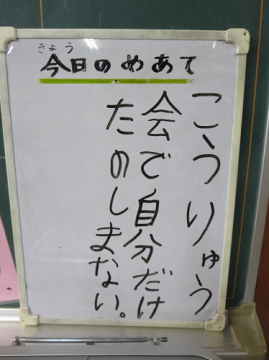 きょう
今日のめあて
こうりゅう
会で自分だけ
たのしまない。